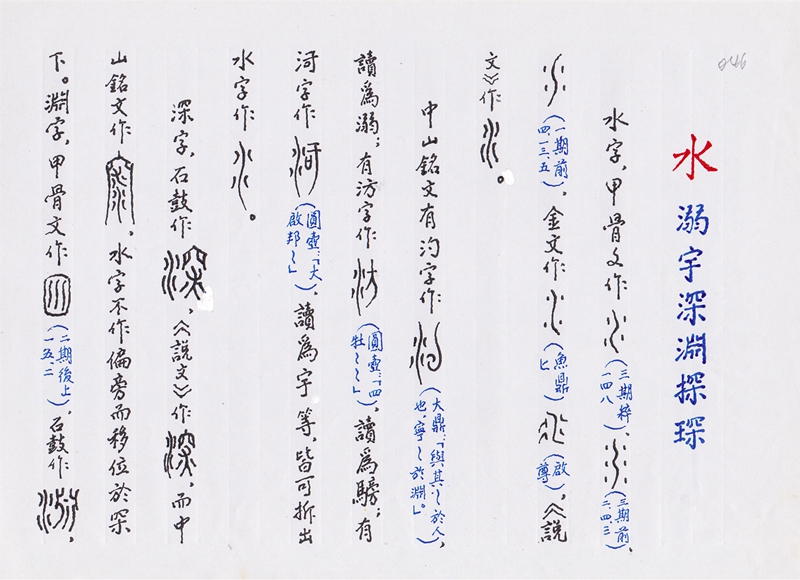 046
水 溺宇深淵探琛
水字，甲骨文作（三期粹一四八）、（三期前二、四、三），
（一期前四、一三、五），金文作（魚鼎匕）（啟尊），《說
文》作。
中山銘文有汋字作（大鼎：「與其〻於人也，寧〻於淵。」），
讀為溺；有汸字作（圓壺：「四牡〻〻」），讀為騯；有
汿字作（圓壺：「大啟邦〻」），讀為宇等，皆可拆出
水字作。
深字，石鼓作，《說文》作，而中
山銘文作，水字不作偏旁而移位於罙
下。淵字，甲骨文作（二期後上一五、二），石鼓作，